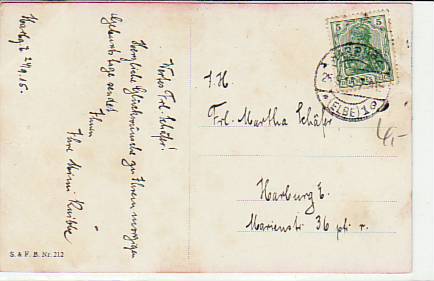 Harbg. d. 24/9.15.
Wertes Frl. Schäfer!
Herzliche Glückwünsche zu Ihrem morgigen
Geburtstage sendet
Ihnen
Ihre
S. & F. B. Nr. 212
5 5
HARBURG
25
*(ELBE)1*
I. H.
Frl. Martha Schäfer
Harburg E.
Marienstr. 36 ptr. r.